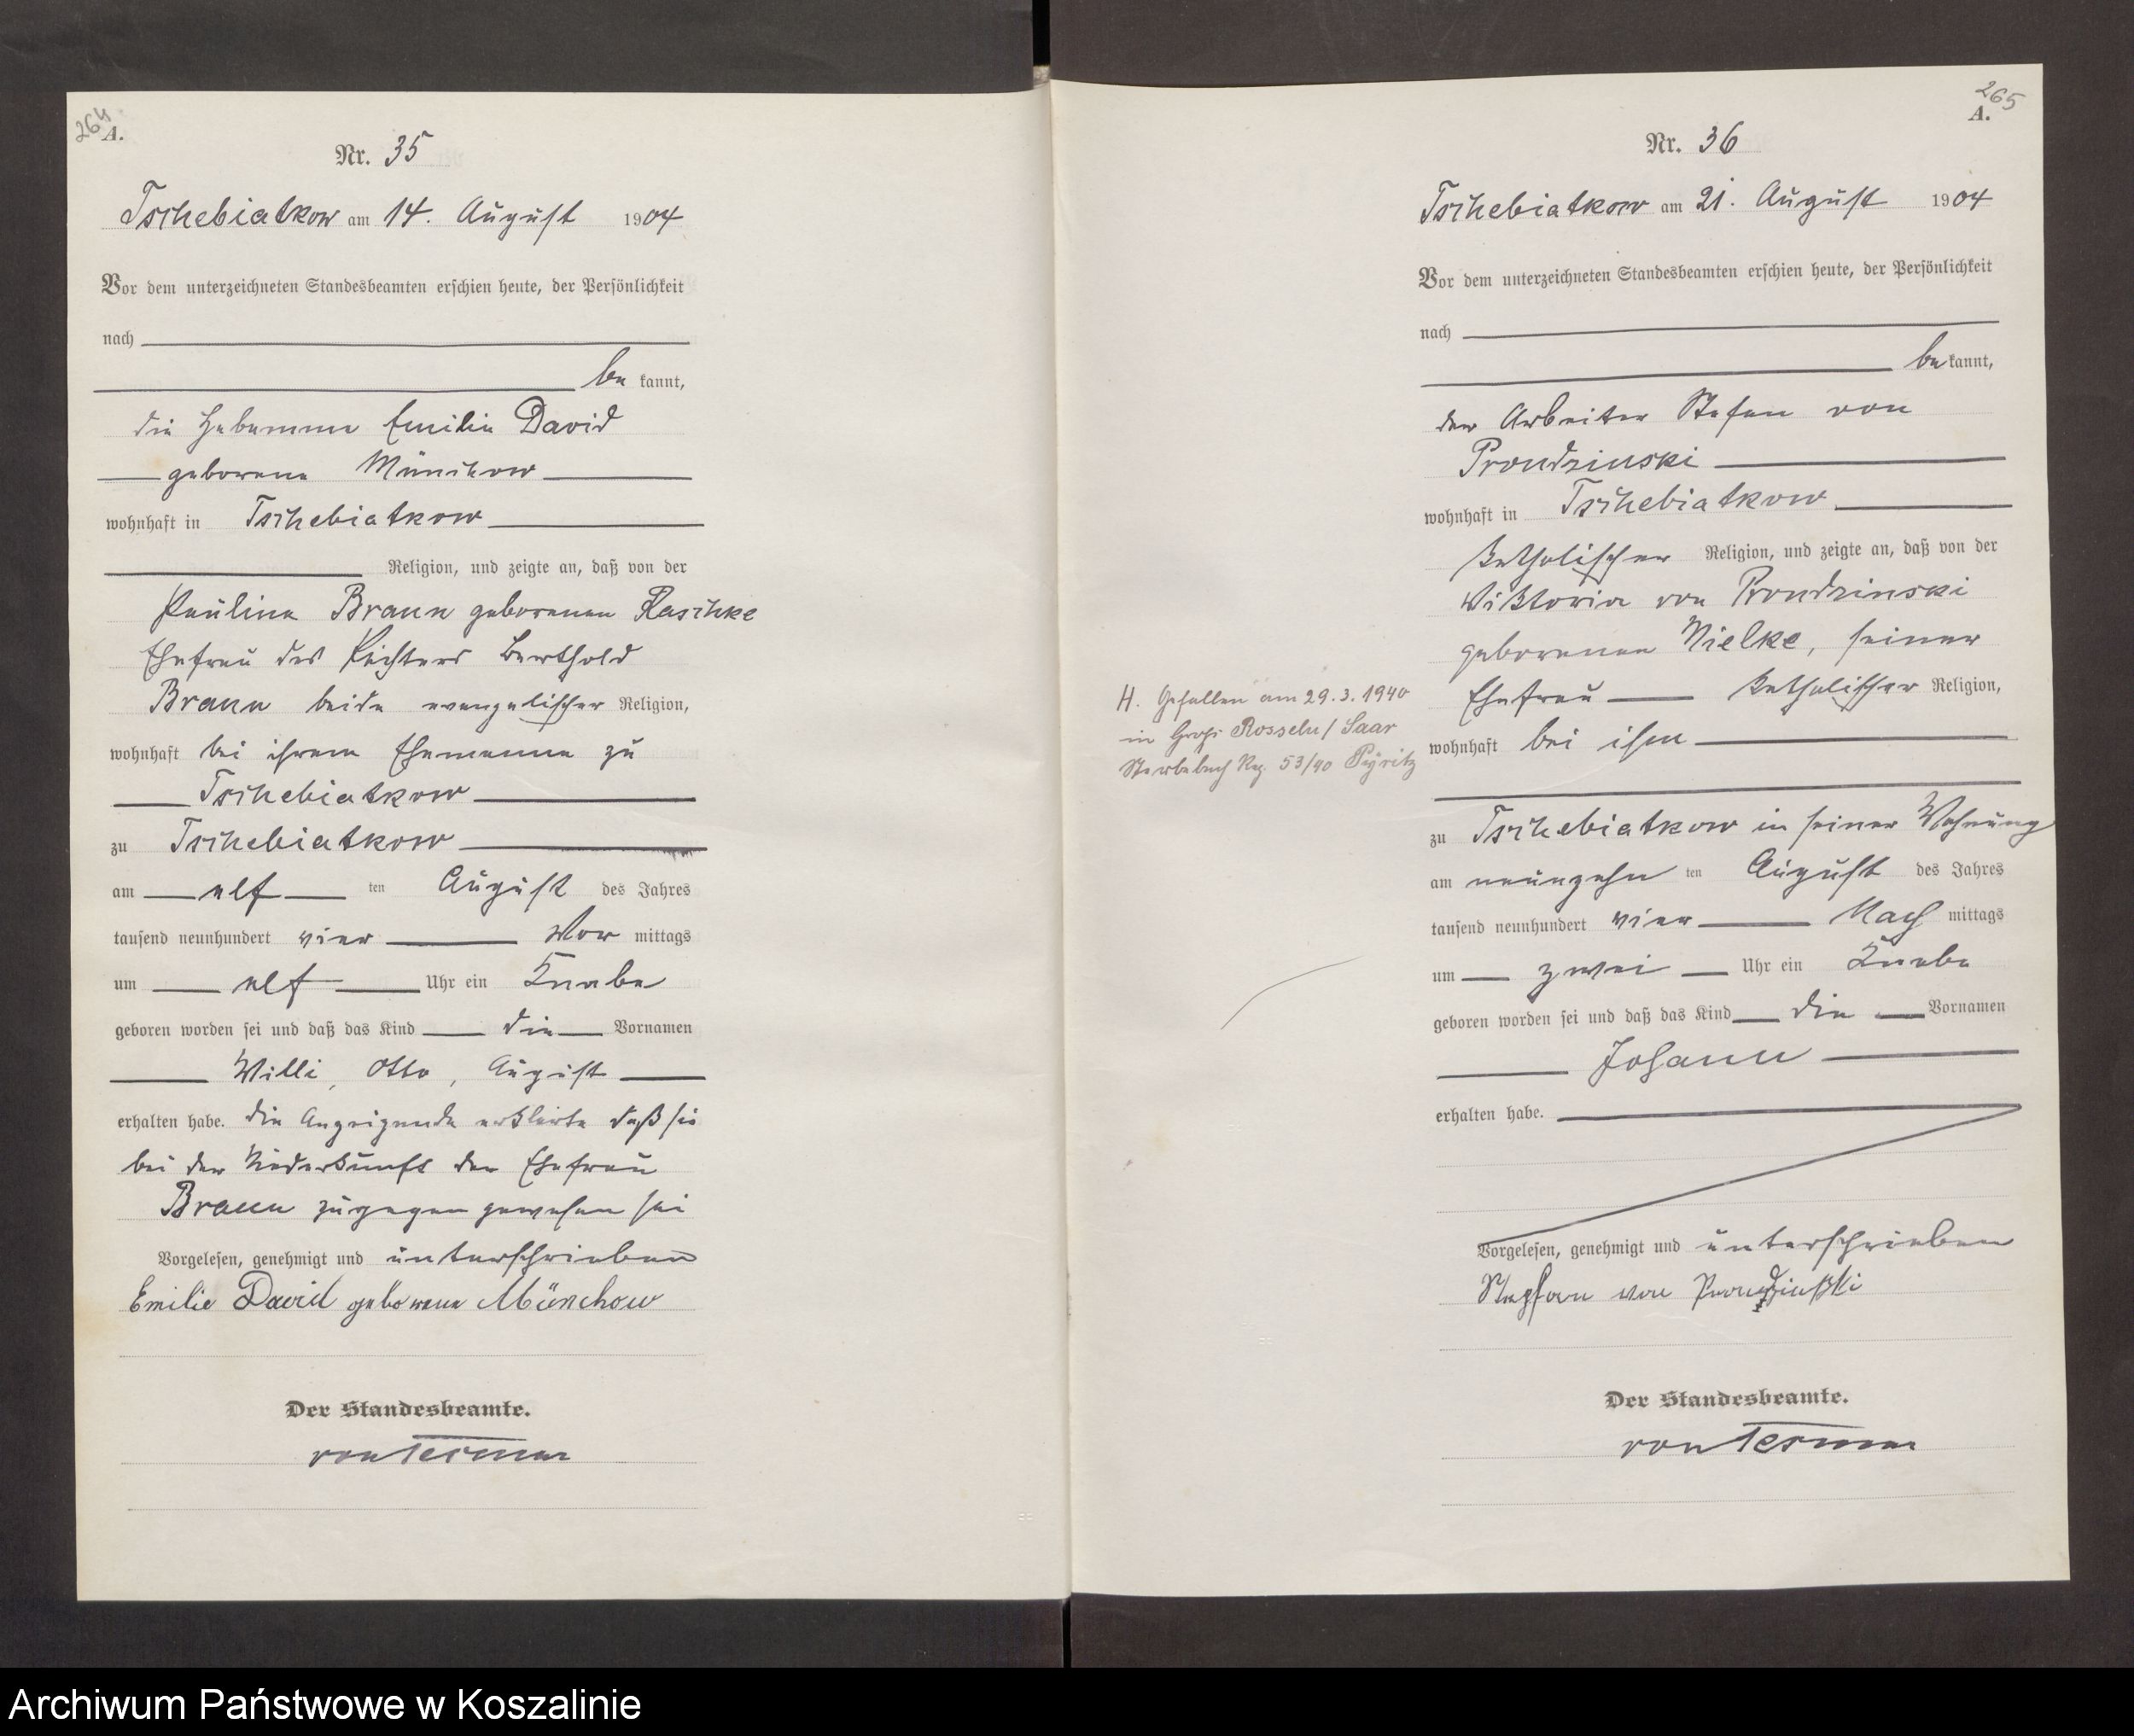 264
A.
Nr. 35
Tschebiatkow am 14. August 1904
Vor dem unterzeichneten Standesbeamten erschien heute, der Persönlichkeit
nach
be kannt,
die Hebamme Emilie David
geborene Münchow
wohnhaft in Tschebiatkow
Religion, und zeigte an, daß von der
Pauline Braun geborenen Raschke
Ehefrau des Pächters Berthold
Braun beide evangelischer Religion,
wohnhaft bei ihrem Ehemanne zu
Tschebiatkow
zu Tschebiatkow
am elf ten August des Jahres
tausend neunhundert vier Vor mittags
um elf Uhr ein Knabe
geboren worden sei und daß das Kind die Vornamen
Willi, Otto, August
erhalten habe. Die Anzeigende erklärte daß sie
bei der Niederkunft der Ehefrau
Braun zugegen gewesen sei
Vorgelesen, genehmigt und unterschrieben
Emilie David geborene Münchow
Der Standesbeamte.
von
265
A.
Nr. 36
Tschebiatkow am 21. August 1904
Vor dem unterzeichneten Standesbeamten erschien heute, der Persönlichkeit
nach
be kannt,
der Arbeiter Stefan von
Prondzinski
wohnhaft in Tschebiatkow
katholischer Religion, und zeigte an, daß von der
Wiktoria von Prondzinski
geborenen Mielke, seiner
Ehefrau katholischer Religion,
wohnhaft bei ihm
zu Tschebiatkow in seiner Wohnung
am neunzehn ten August des Jahres
tausend neunhundert vier Nach mittags
um zwei Uhr ein Knabe
geboren worden sei und daß das Kind die Vornamen
Johann
erhalten habe.
Vorgelesen, genehmigt und unterschrieben
Stephan von Prondzinski
Der Standesbeamte.
von
H. Gefallen am 29.3.1940
in Groß Rosseln/Saar
Sterbebuch Reg. 53/40 Pyritz
Archiwum Państwowe w Koszalinie